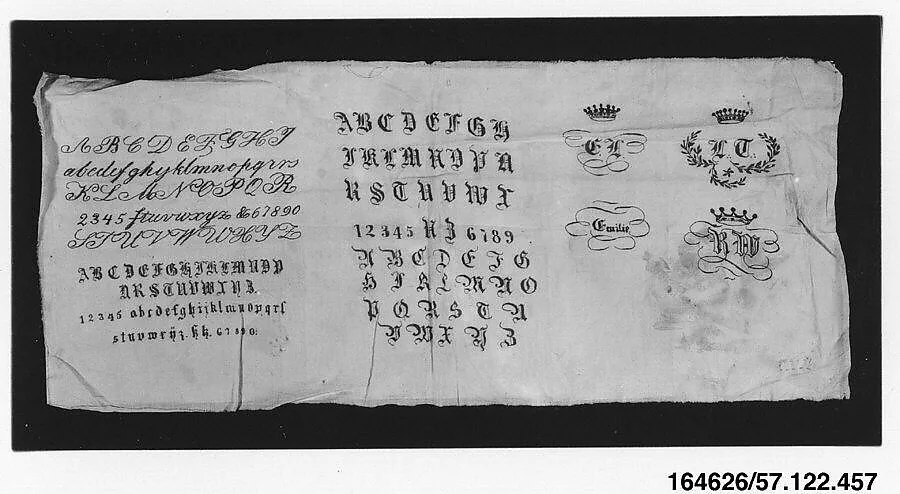 A B C D E F G H J
abcdefghyklmnopqrrs
K L M N O P Q R
2345 stuvwxyz & 67890
S T U V W U X Y Z
A B C D E F G H I K L M N O P
Q R S T U V W X Y Z.
12345 abcdefghijklmnopqrſ
stuvwxÿz. 67890.
A B C D E F G H
I K L M N O P Q
R S T U V W X
12345 Y Z 6789
A B C D E F G
H I K L M N O
P Q R S T U
V W X Y Z
EL
L.T.
Emilie
RW
164626/57.122.457